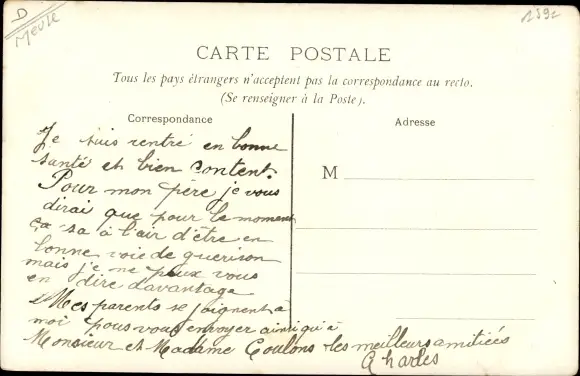 D
Meuse
CARTE POSTALE
Tous les pays étrangers n'acceptent pas la correspondance au recto.
(Se renseigner à la Poste).
Correspondance
Je suis rentré en bonne
santé et bien content.
Pour mon père je vous
dirai que pour le moment
ça sa à l'air d'être en
bonne voie de guerison
mais je ne peux vous
en dire davantage
Mes parents se joignent à
moi pous vous envoyer ainsi qu'à
Monsieur et Madame Coulons les meilleurs amitiées
Charles
Adresse
M